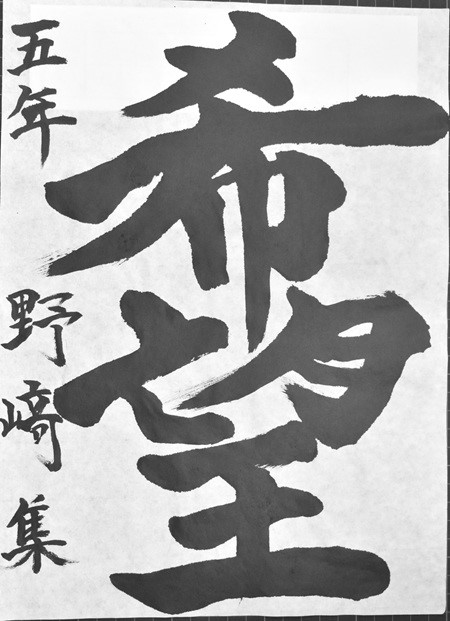 希望
五年 野﨑集